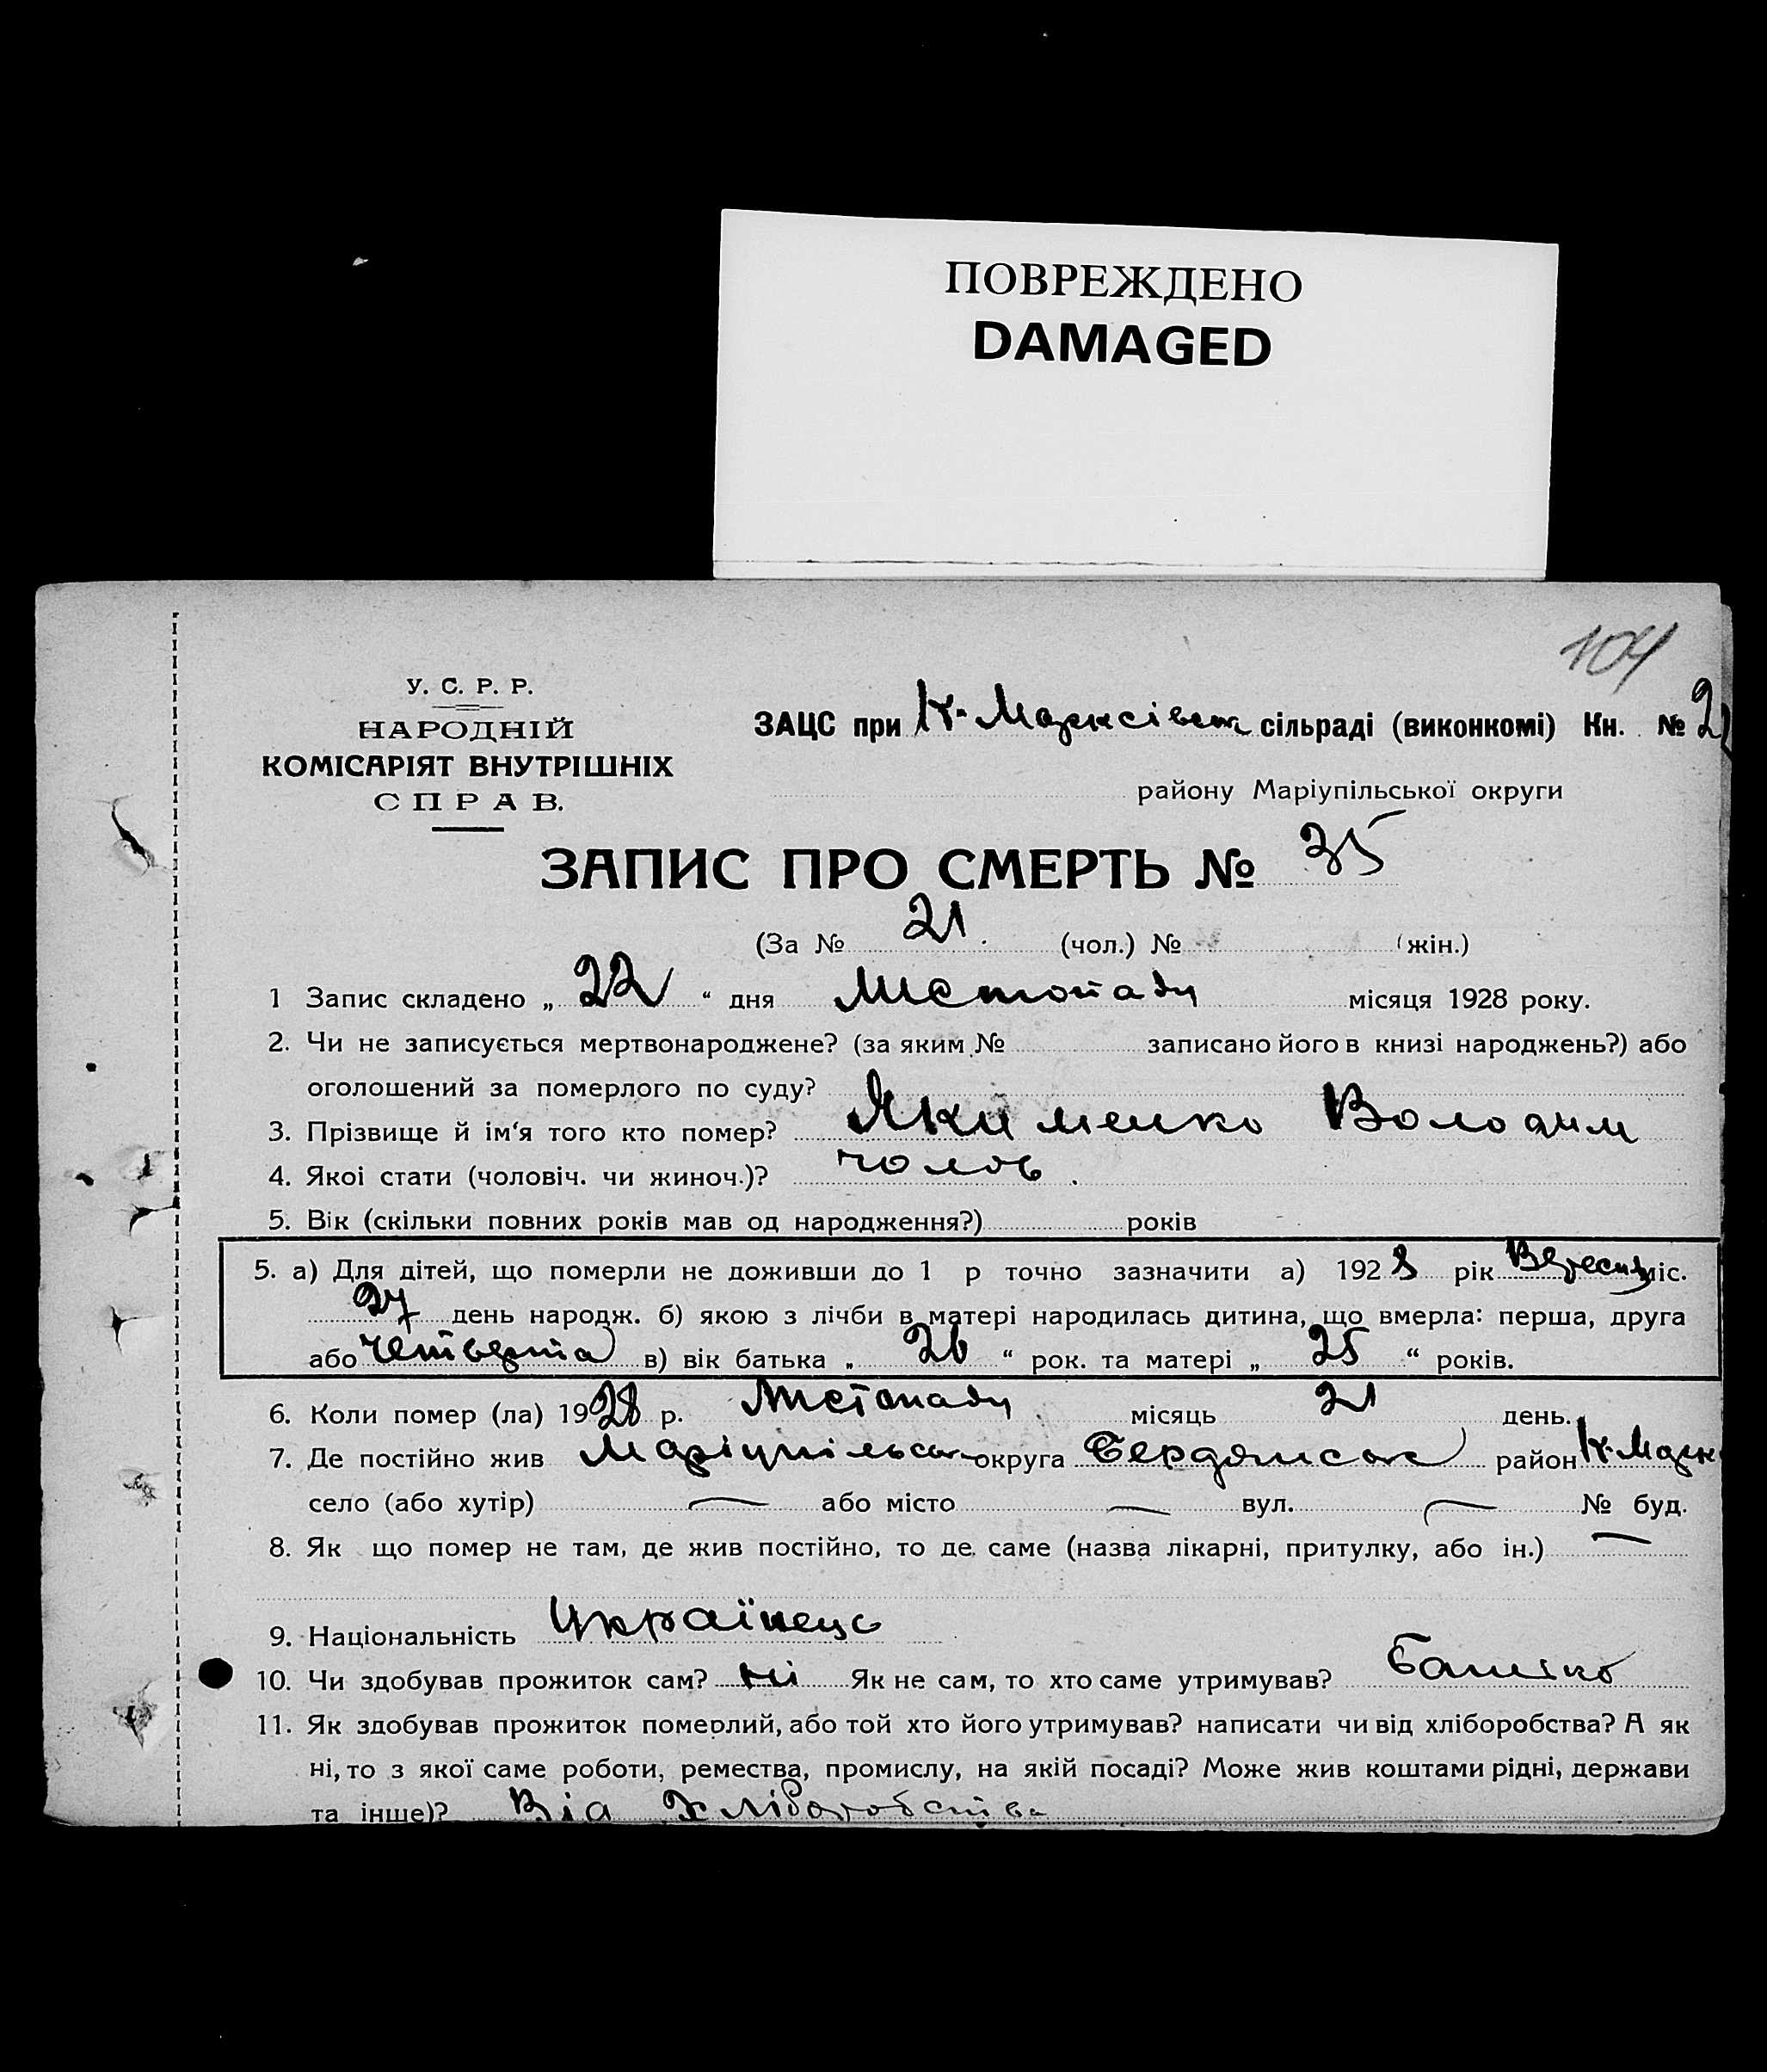 ПОВРЕЖДЕНО
DAMAGED
104
У. С. Р. Р.
НАРОДНІЙ
КОМІСАРІЯТ ВНУТРІШНІХ
СПРАВ.
ЗАЦС при К-Марксівськ сільраді (виконкомі) Кн. № 2
району Маріупільської округи
ЗАПИС ПРО СМЕРТЬ № 35
(За № 21 (чол.) № (жін.)
1 Запис складено „ 22 “ дня Листопаду місяця 1928 року.
2. Чи не записується мертвонароджене? (за яким № записано його в книзі народжень?) або
оголошений за померлого по суду?
3. Прізвище й ім‘я того кто помер? Якименко Володим
4. Якоі стати (чоловіч. чи жиноч.)? чолов.
5. Вік (скільки повних років мав од народження?) років
5. а) Для дітей, що померли не доживши до 1 р точно зазначити а) 1928 рік Вересня міс.
27 день народж. б) якою з лічби в матері народилась дитина, що вмерла: перша, друга
або четверта в) вік батька „ 26 “ рок. та матері „ 25 “ років.
6. Коли помер (ла) 1928 р. Листопаду місяць 21 день.
7. Де постійно жив Маріупільськ округа Бердянськ район К-Марк
село (або хутір) — або місто — вул. — № буд.
8. Як що помер не там, де жив постійно, то де саме (назва лікарні, притулку, або ін.) —
9. Національність Українець
10. Чи здобував прожиток сам? ні Як не сам, то хто саме утримував? Батько
11. Як здобував прожиток померлий, або той хто його утримував? написати чи від хліборобства? А як
ні, то з якої саме роботи, ремества, промислу, на якій посаді? Може жив коштами рідні, держави
та інше)? Від Хліборобства